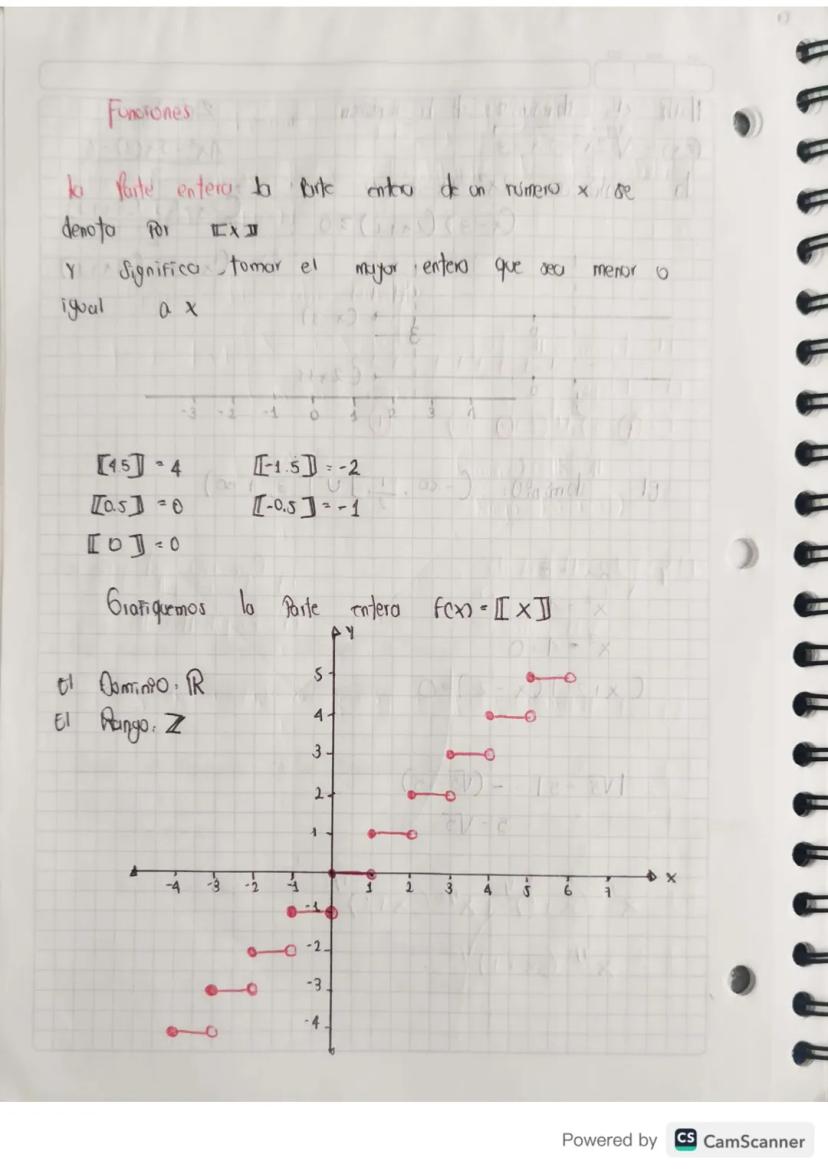 Funciones
la Parte entera: la Parte entera de un número x se
denota Por ⟦x⟧
Y Significa tomar el mayor entero que sea menor o
igual a x
-3 -2 -1 0 1 2 3 4
⟦4.5⟧ = 4 ⟦-1.5⟧ = -2
⟦0.5⟧ = 0 ⟦-0.5⟧ = -1
⟦0⟧ = 0
Grafiquemos la Parte entera f(x) = ⟦x⟧
Y
El Dominio: ℝ
El Rango: ℤ
5
4
3
2
1
-4 -3 -2 -1 1 2 3 4 5 6 7 x
-1
-2
-3
-4
Powered by CS CamScanner